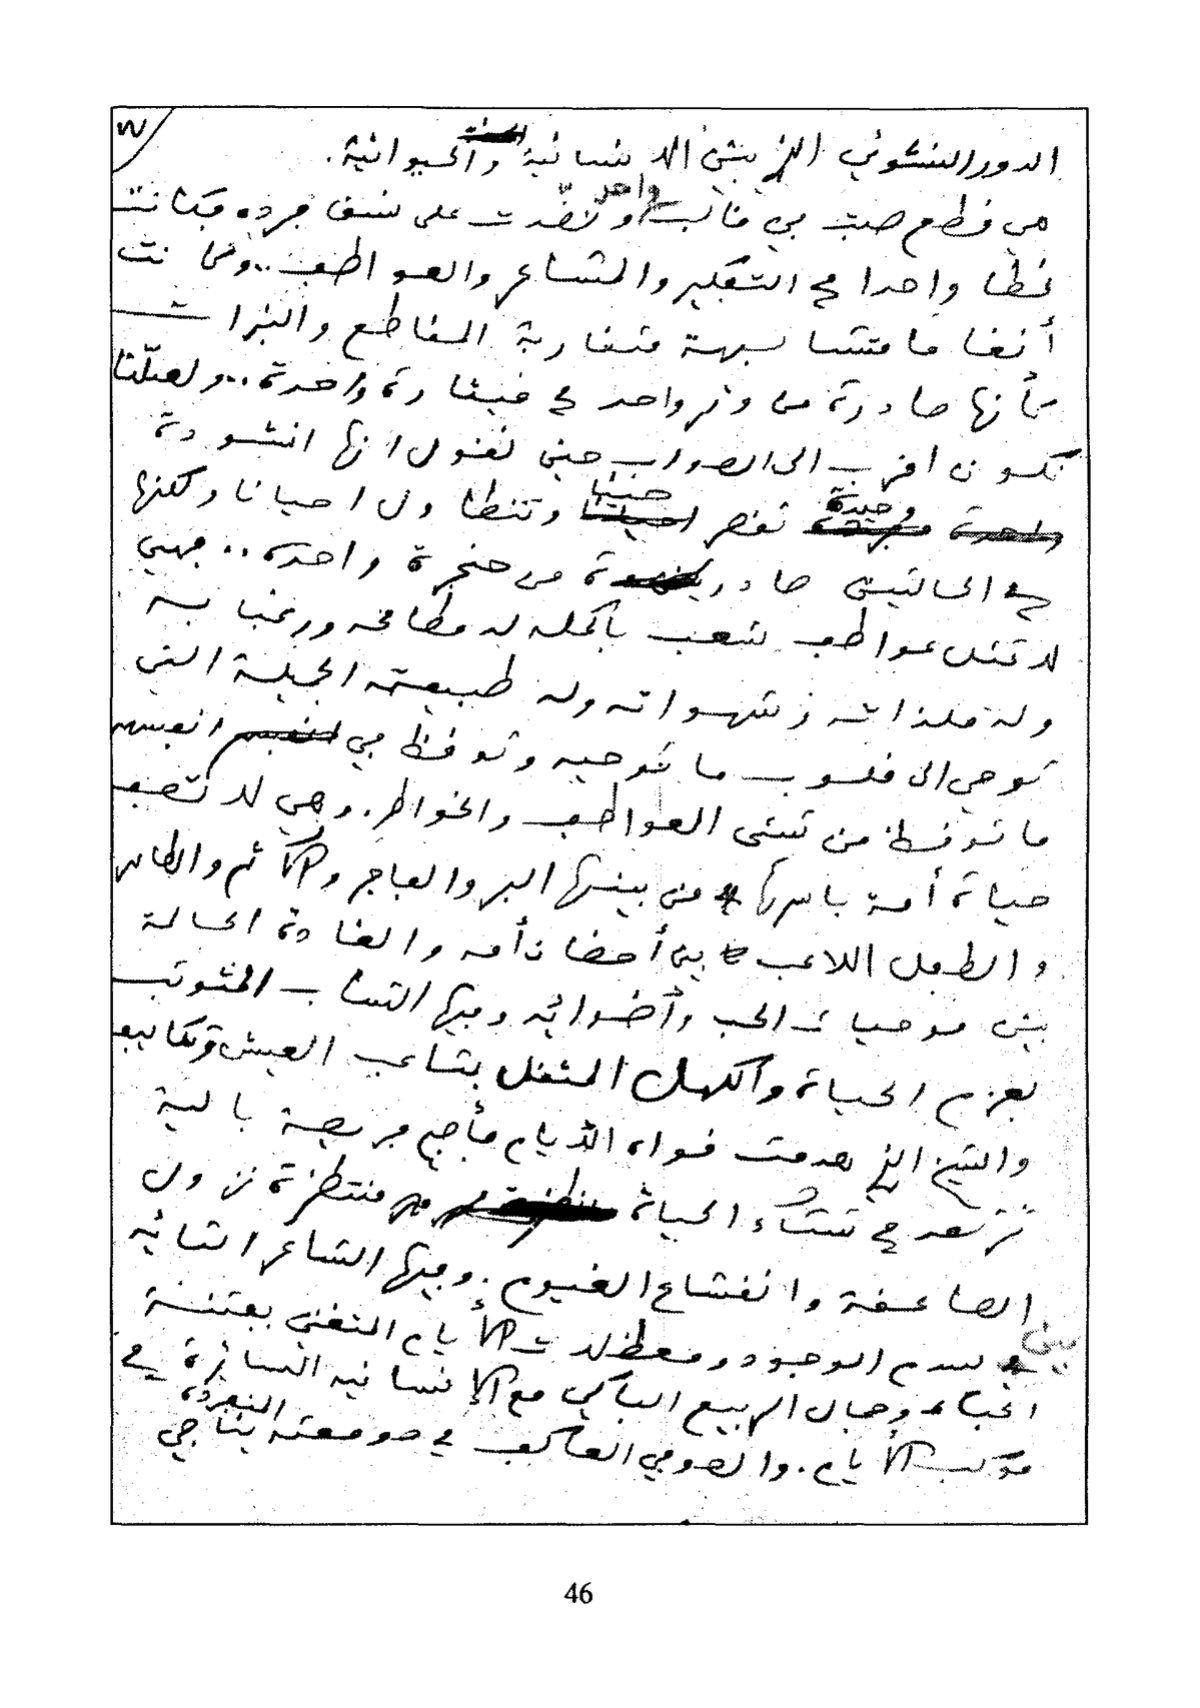 الدور النشوئي الذي بين الانسانية والحيوانية.
هي قطع صبت في قالب واحد ونضدت على نسق فرده فكانت
نمطا واحدا في التفكير والمشاعر والعواطف.. وكانت
أنغاما متشابهة متقاربة المقاطع والنبرات
كأنها صادرة من وتر واحد في قيثارة واحدة.. ولعلّنا
نكون اقرب الى الصواب حين نقول انها انشودة
وحيدة تقصر حينا وتتطاول احيانا ولكنها
في الحالتين صادرة من حنجرة واحده.. فهي
لا تمثل عواطف شعب بأكمله له مطامحه ورغباته
وله ملذاته وشهواته وله طبيعته الجميلة التي
توحي الى قلوب ما توحيه وتوقظ في انفسهم
ما توقظ من شتى العواطف والخواطر. وهي لا تصف
حياة أمة باسرها فمن بينها البر والفاجر والآثم والطاهر
والطفل اللاعب بين أحضان أمه والغادة الحالمة
بين موحيات الحب وأضوائه وفيها الشاب المتوثب
بعزم الحياة والكهل المثقل بمتاعب العيش وتكاليفه
والشيخ الذي هدمت قواه الأيام فأصبح فريصة بالية
ترتعد في شتاء الحياة منتظرة نزول
الصاعفة وانقشاع الغيوم. وفيها الشاعر التائه
بين سدم الوجود ومعظلات الأيام المتغني بفتنة
الحياة وجمال الربيع الباكي مع الإنسانيه السائرة في
موكب الأيام. والصوفي العاكف في صومعته المنفردة يناجي
46